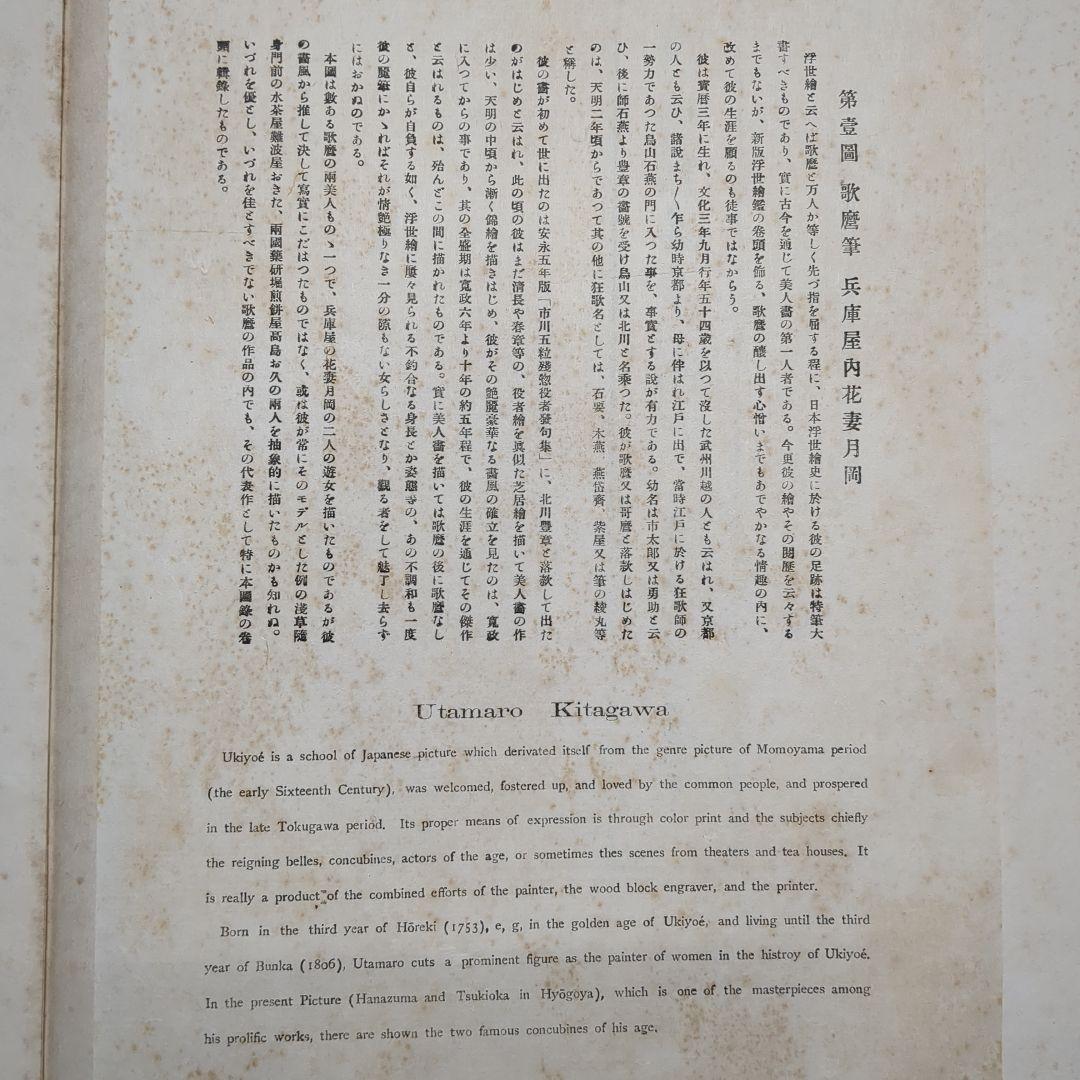 第壹圖　歌麿筆　兵庫屋內花妻月岡
浮世繪と云へば歌麿と万人か等しく先づ指を屆する程に、日本浮世繪史に於ける彼の足跡は特筆大
書すべきものであり、實に古今を通じて美人畵の第一人者である。今更彼の繪やその閱歷を云々する
までもないが、新版浮世繪鑑の卷頭を飾る、歌麿の釀し出す心憎いまでもあでやかなる情趣の內に、
改めて彼の生涯を顧るのも徒事ではなからう。
彼は寶曆三年に生れ、文化三年九月行年五十四歲を以つて沒した武州川越の人とも云はれ、又京都
の人とも云ひ、諸說まち〳〵乍ら幼時京都より、母に伴はれ江戶に出で、當時江戶に於ける狂歌師の
一勢力であつた鳥山石燕の門に入つた事を、事實とする說が有力である。幼名は市太郎又は勇助と云
ひ、後に師石燕より豊章の畵號を受け鳥山又は北川と名乘つた。彼が歌麿又は哥麿と落款しはじめた
のは、天明二年頃からであつて其の他に狂歌名としては、石要、木燕、燕岱齊、紫屋又は筆の綾丸等
と稱した。
彼の畵が初めて世に出たのは安永五年版「市川五粒殘惣役者發句集」に、北川豊章と落款して出た
のがはじめと云はれ、此の頃の彼はまだ淸長や春章等の、役者繪を眞似た芝居繪を描いて美人畵の作
は少い、天明の中頃から漸く錦繪を描きはじめ、彼がその艶麗豪華なる畵風の確立を見たのは、寬政
に入つてからの事であり、其の全盛期は寬政六年より十年の約五年程で、彼の生涯を通じてその傑作
と云はれるものは、殆んどこの間に描かれたものである。實に美人畵を描いては歌麿の後に歌麿なし
と、彼自らが自負する如く、浮世繪に屢々見られる不釣合なる身長とか姿態等の、あの不調和も一度
彼の麗筆にかゝればそれが情艶極りなき一分の隙もない女らしさとなり、觀る者をして魅了し去らず
にはおかぬのである。
本圖は數ある歌麿の兩美人ものゝ一つで、兵庫屋の花妻月岡の二人の遊女を描いたものであるが彼
の畵風から推して決して寫實にこだはつたものではなく、或は彼が常にそのモデルとした例の淺草隨
身門前の水茶屋難波屋おきた、兩國藥硏堀煎餅屋高島お久の兩人を抽象的に描いたものかも知れぬ。
いづれを優とし、いづれを佳とすべきでない歌麿の作品の內でも、その代表作として特に本圖錄の卷
頭に輯錄したものである。
Utamaro Kitagawa
Ukiyoé is a school of Japanese picture which derivated itself from the genre picture of Momoyama period
(the early Sixteenth Century), was welcomed, fostered up, and loved by the common people, and prospered
in the late Tokugawa period. Its proper means of expression is through color print and the subjects chiefly
the reigning belles, concubines, actors of the age, or sometimes thes scenes from theaters and tea houses. It
is really a product of the combined efforts of the painter, the wood block engraver, and the printer.
Born in the third year of Hōreki (1753), e, g, in the golden age of Ukiyoé, and living until the third
year of Bunka (1806), Utamaro cuts a prominent figure as the painter of women in the histroy of Ukiyoé.
In the present Picture (Hanazuma and Tsukioka in Hyōgoya), which is one of the masterpieces among
his prolific works, there are shown the two famous concubines of his age.